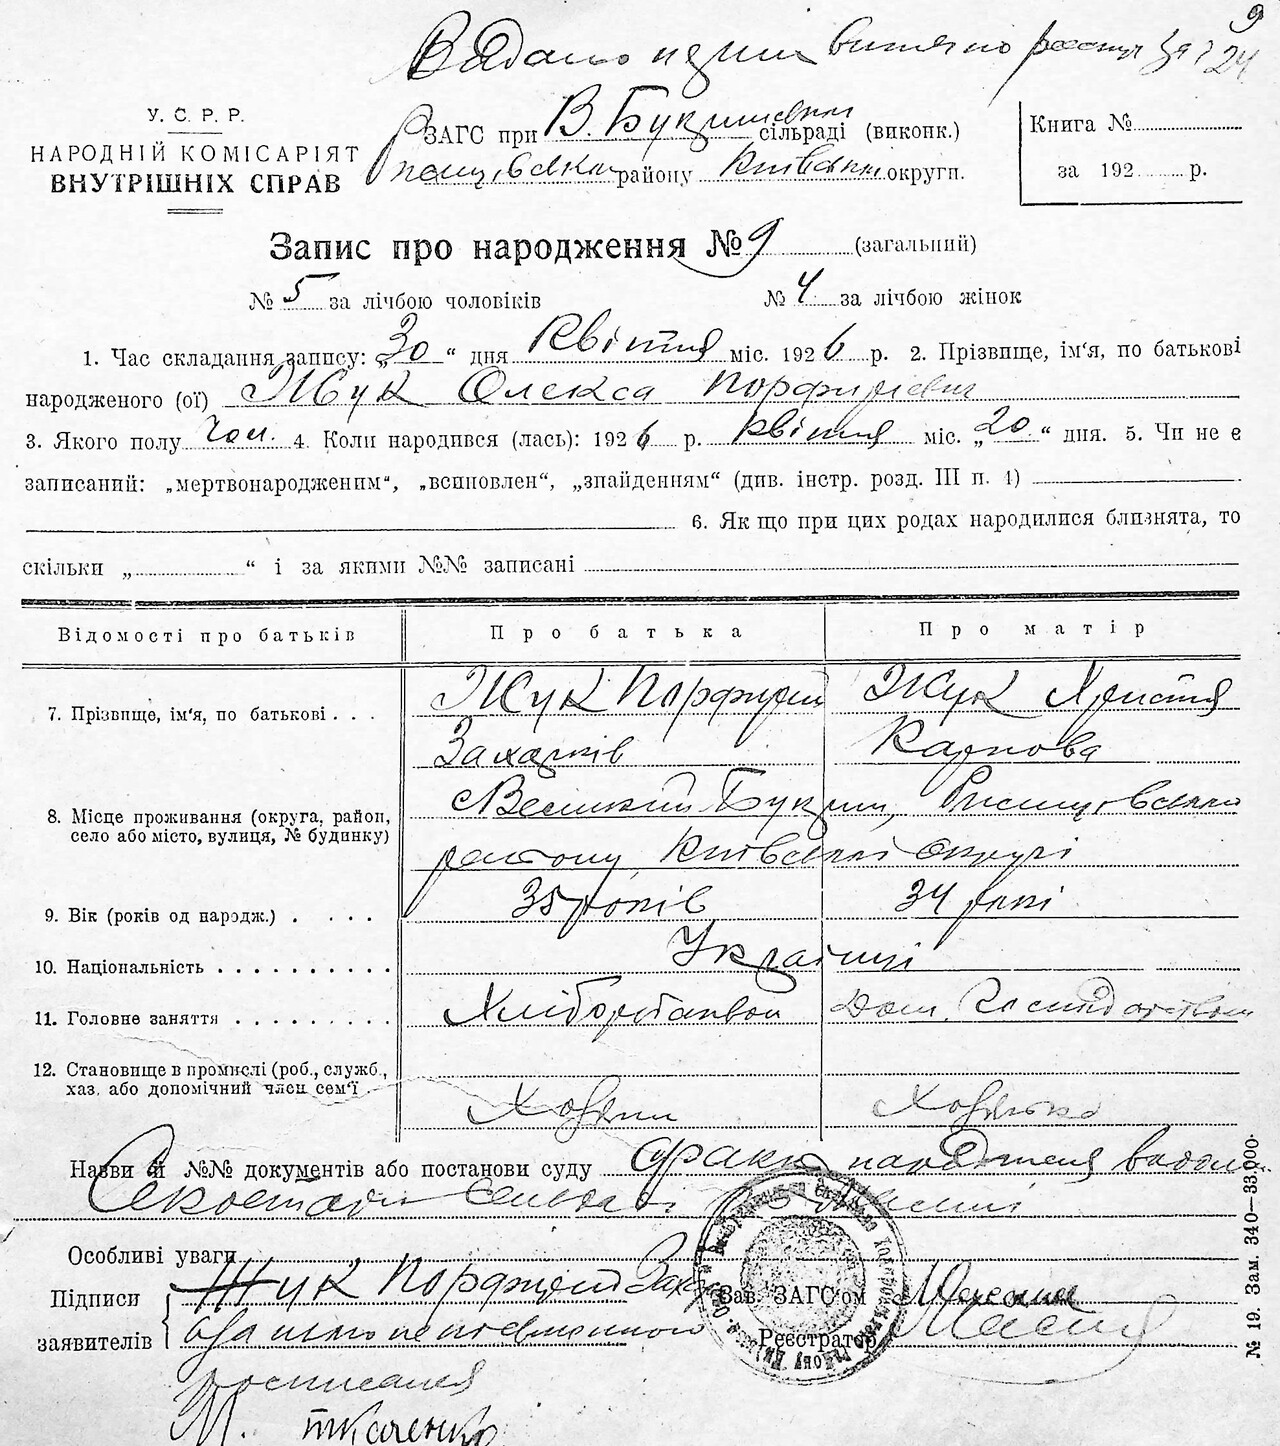 Видано
9
24
У. С. Р. Р.
НАРОДНІЙ КОМІСАРІЯТ
ВНУТРІШНІХ СПРАВ
ЗАГС при В. Букринській сільраді (виконк.)
району Київської округи.
Книга №
за 192 р.
Запис про народження № 9 (загальний)
№ 5 за лічбою чоловіків
№ 4 за лічбою жінок
1. Час складання запису: „30“ дня Квітня міс. 1926 р. 2. Прізвище, ім‘я, по батькові
народженого (ої) Жук Олекса Порфирієвич
3. Якого полу чол. 4. Коли народився (лась): 1926 р. квітня міс. „20“ дня. 5. Чи не є
записаний: „мертвонародженим“, „всиновлен“, „знайденням“ (див. інстр. розд. III п. 4)
6. Як що при цих родах народилися близнята, то
скільки „ “ і за якими №№ записані
Відомості про батьків
Про батька
Про матір
7. Прізвище, ім‘я, по батькові . . .
Жук Порфирій
Жук Христя
Захарків
Карпова
8. Місце проживання (округа, район,
село або місто, вулиця, № будинку)
Великий Букрин, Ржищівського
району Київської округи
9. Вік (років од народж.) . . . .
35 років
34 роки
10. Національність . . . . . . . . . .
Українці
11. Головне заняття . . . . . . . . .
Хліборобство
Дом. Господарством
12. Становище в промислі (роб., служб.,
хаз. або допомічний член сем‘ї
Хазяїн
Хазяйка
Назви й №№ документів або постанови суду
Особливі уваги
Підписи
заявителів
Жук Порфирій Зах
Зав. ЗАГС‘ом
Реєстратор
М. Ткаченко
№ 19. Зам. 340—33.000.